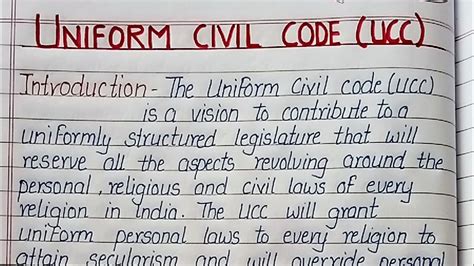 UNIFORM CIVIL CODE (UCC)
Introduction - The Uniform Civil code (UCC)
is a vision to contribute to a
uniformly structured legislature that will
reserve all the aspects revolving around the
personal, religious and civil laws of every
religion in India. The UCC will grant
uniform personal laws to every religion to
attain secularism and will override personal